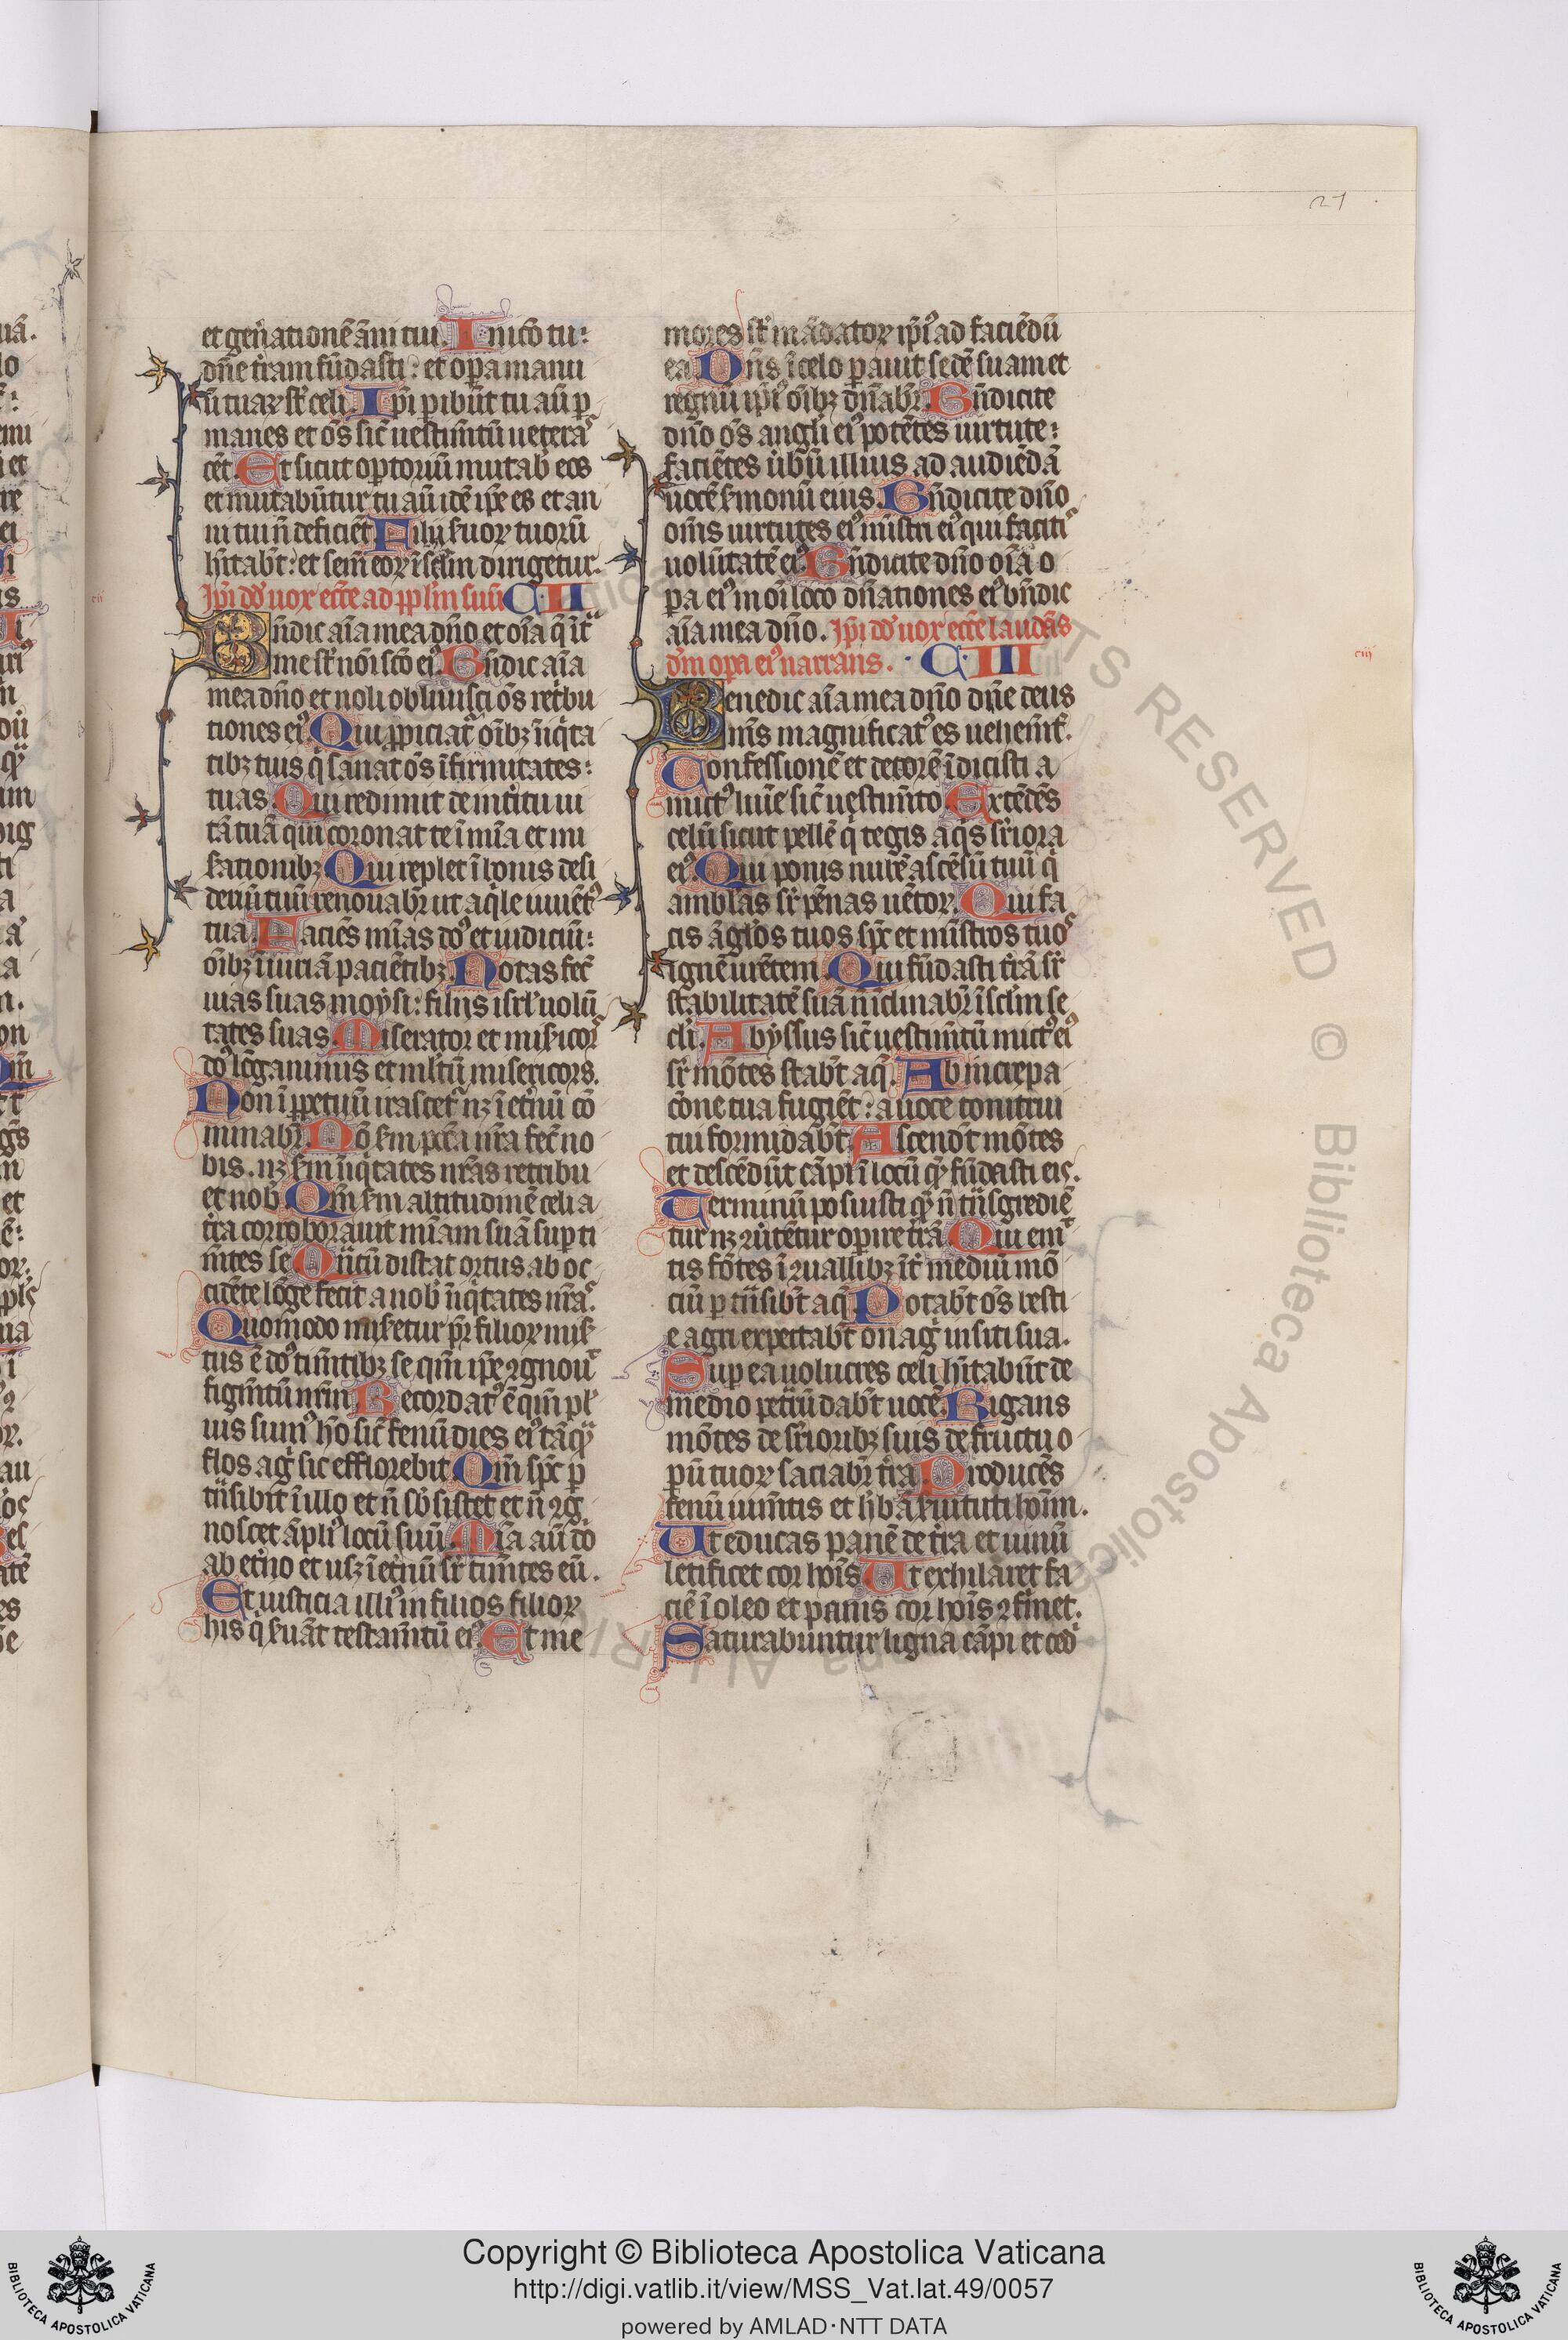 27
et gen̄atiōnē ān̄i tui. Inicō tu:
dn̄e t̄ram fūdasti: et oꝑa manu
ū tuaꝝ st̄ celi. Ip̄i ꝑibūt tu aū ꝑ
manes et om̄s sic̄ uestim̄tū uetera
cēt. Et sicut opt̄oriū mutab̄ eos
et mutabūtur tu aū idē ip̄e es et an
ni tui n̄ deficiēt. Filij s̄uoꝝ tuoꝝ
hītabūt: et sem̄ eoꝝ ī sc̄lm dirigetur.
Ip̄i dd̄ uox ecc̄e ad pp̄lm suū C II
Bn̄dic aīa mea dn̄o et oīa q̄ īt̄
me st̄ nōi sc̄o eiꝰ. Bn̄dic aīa
mea dn̄o et noli obliuisci om̄s ret̄bu
tiones eiꝰ. Qui ꝓpiciat̄ oībꝫ iniq̄ta
tibꝫ tuis q̄ sanat om̄s īfirmitates:
tuas. Qui redimit de int̄itu ui
tā tuā qui coronat te ī mīa et mi
s̄ationibꝫ. Qui replet ī bonis desi
deriū tuū renouabr̄ ut aq̄le iuuēt̄ꝰ
tua. Faciēs mīas dn̄s et iudiciū:
oībꝫ iniuriā paciētibꝫ. Notas fec̄
uias suas moysi: filijs isrl̄ uolū
tates suas. Miserator et mis̄icor
dn̄s lōganimis et mlt̄ū misericors.
Non ī ꝑpetuū irascet̄ nꝫ ī et̄nū cō
minabr̄. Nō s̄m pc̄ca nr̄a fec̄ no
bis. nꝫ s̄m iniq̄tates nr̄as retribu
et nob̄. Qm̄ s̄m altitudinē celi a
t̄ra corroborauit mīam suā suꝑ ti
m̄tes se. Qn̄tū distat ortus ab oc
cidēte lōge fecit a nob̄ iniq̄tates nr̄as.
Quomodo mis̄etur pr̄ filioꝝ mis̄
tus ē dn̄s tim̄tibꝫ se qm̄ ip̄e ꝯgnouit
figm̄tū nr̄m. Recordatꝰ ē qm̄ pl
uis sumꝰ hō sic̄ fenū dies eiꝰ tāqꝫ
flos agi sic efflorebit. Qm̄ sp̄c ꝑ
trīsibit ī illo et n̄ sb̄sistet et n̄ ꝯg
noscet āpliꝰ locū suū. Mīa aū dn̄i
ab et̄no et usqꝫ ī et̄nū sr̄ tim̄tes eū.
Et iusticia illiꝰ in filios filioꝝ
his q̄ s̄uāt testam̄tū eiꝰ. Et me
mores st̄ mādatoꝝ ip̄iꝰ ad faciēdū
ea. Dn̄s ī celo ꝑauit sedē suam et
regnū ip̄iꝰ oībꝫ dn̄abr̄. Bn̄dicite
dn̄o om̄s angl̄i eiꝰ potētes uirtute:
faciētes ūbū illius ad audiēdā
uocē s̄monū eius. Bn̄dicite dn̄o
om̄s uirtutes eiꝰ mīstri eiꝰ qui faciti
uolūtatē eiꝰ. Bn̄dicite dn̄o oīa o
ꝑa eiꝰ in oī loco dn̄ationes eiꝰ bn̄dic
aīa mea dn̄o. Ip̄i dd̄ uox ecc̄e laudās
dm̄ oꝑa eiꝰ narrans. C III
ciij
Benedic aīa mea dn̄o dn̄e deus
ms̄ magnificatꝰ es uehem̄t̄.
Confessionē et decorē īdicisti a
mictꝰ lum̄e sic̄ uestim̄to. Extēdēs
celū sicut pellē q̄ tegis aq̄s sr̄iora
eiꝰ. Qui ponis nubē ascēsū tuū q̄
amblas sr̄ pēnas uētoꝝ. Qui fa
cis āgl̄os tuos spc̄ et mīstros tuos
ignē urētem. Qui fūdasti t̄rā sr̄
stabilitatē suā n̄ īclinabr̄ ī sc̄lm se
cl̄i. Abyssus sic̄ uestim̄tū mictꝰ eiꝰ
sr̄ mōtes stabt̄ aq̄. Ab increpa
cōne tua fugiēt: a uoce tonitrui
tui formidābt̄. Ascendt̄ mōtes
et descēdūt cāpi ī locū qꝫ fūdasti eis.
Terminū posuisti qꝫ n̄ trīsgrediē
tur nꝫ ꝯūtētur oꝑire t̄rā. Qui emit
tis fōtes ī ꝯuallibꝫ īt̄ mediū mō
ciū ꝑ trīsibt̄ aq̄. Potabt̄ om̄s besti
e agri expectabt̄ onagi in siti sua.
Suꝑ ea uolucres celi hītabūt de
medio petrū dabt̄ uocē. Rigans
mōtes de sr̄ioribꝫ suis de fructu o
ꝑū tuoꝝ saciabr̄ t̄ra. Producēs
fenū ium̄tis et hb̄ā s̄uituti hoīm.
Ut educas panē de t̄ra et uinū
letificet cor hoīs. Ut exhilaret fa
ciē ī oleo et panis cor hoīs ꝯfirmet.
Saturabuntur ligna cāpi et ced
Copyright © Biblioteca Apostolica Vaticana
http://digi.vatlib.it/view/MSS_Vat.lat.49/0057
powered by AMLAD·NTT DATA
BIBLIOTECA APOSTOLICA VATICANA
BIBLIOTECA APOSTOLICA VATICANA